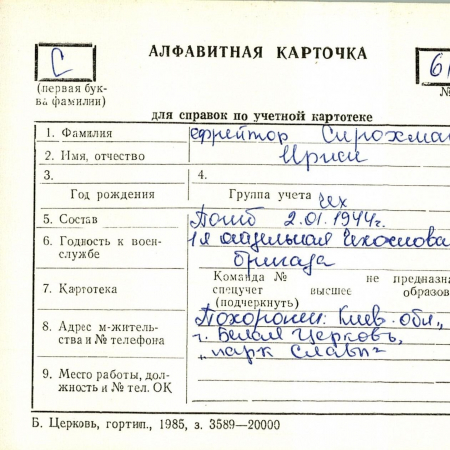 С
АЛФАВИТНАЯ КАРТОЧКА
(первая бук-
ва фамилии)
№
для справок по учетной картотеке
1. Фамилия ефрейтор Сирохман
2. Имя, отчество
3.
4.
Год рождения
Группа учета чех
5. Состав Погиб 2.01.1944г.
6. Годность к воен-
службе
1я отдельная Чехослова
бригада
Команда № не предназна
7. Картотека спецучет высшее образов
(подчеркнуть)
8. Адрес м-житель-
ства и № телефона
Похоронен: Киев. обл.,
г. Белая Церковь,
„парк Славы"
9. Место работы, дол-
жность и № тел. ОК
Б. Церковь, гортип., 1985, з. 3589—20000